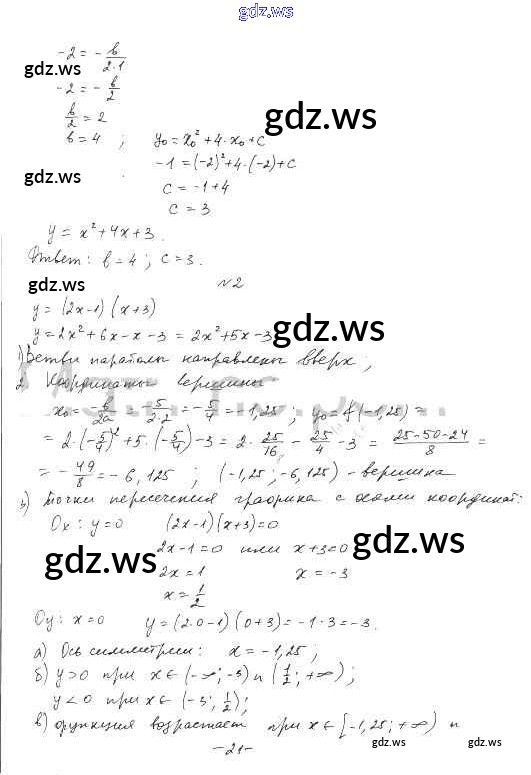 gdz.ws
-2 = - b/2·1
gdz.ws
-2 = - b/2
b/2 = 2
gdz.ws
b = 4 ; y₀ = x₀² + 4·x₀ + c
-1 = (-2)² + 4·(-2) + c
gdz.ws
c = -1 + 4
c = 3
y = x² + 4x + 3.
Ответ: b = 4 ; c = 3.
gdz.ws
N2
y = (2x-1)(x+3)
y = 2x² + 6x - x - 3 = 2x² + 5x - 3
gdz.ws
1) Ветви параболы направлены вверх;
2 Координаты вершины
x₀ = - b/2a = - 5/2·2 = - 5/4 = -1,25 ; y₀ = f(-1,25) =
= 2·(-5/4)² + 5·(-5/4) - 3 = 2· 25/16 - 25/4 - 3 = 25-50-24/8 =
= - 49/8 = -6,125 ; (-1,25; -6,125) - вершина
3) Точки пересечения графика с осями координат:
Ox: y = 0 (2x-1)(x+3) = 0
2x-1 = 0 или x+3 = 0
gdz.ws
gdz.ws
2x = 1 x = -3
x = 1/2
Oy: x = 0 y = (2·0-1)(0+3) = -1·3 = -3.
gdz.ws
а) Ось симметрии: x = -1,25 ;
б) y>0 при x ∈ (-∞; -3) и (1/2; +∞);
y<0 при x ∈ (-3; 1/2);
в) функция возрастает при x ∈ [-1,25; +∞) и
gdz.ws
gdz.ws
-21-
gdz.ws